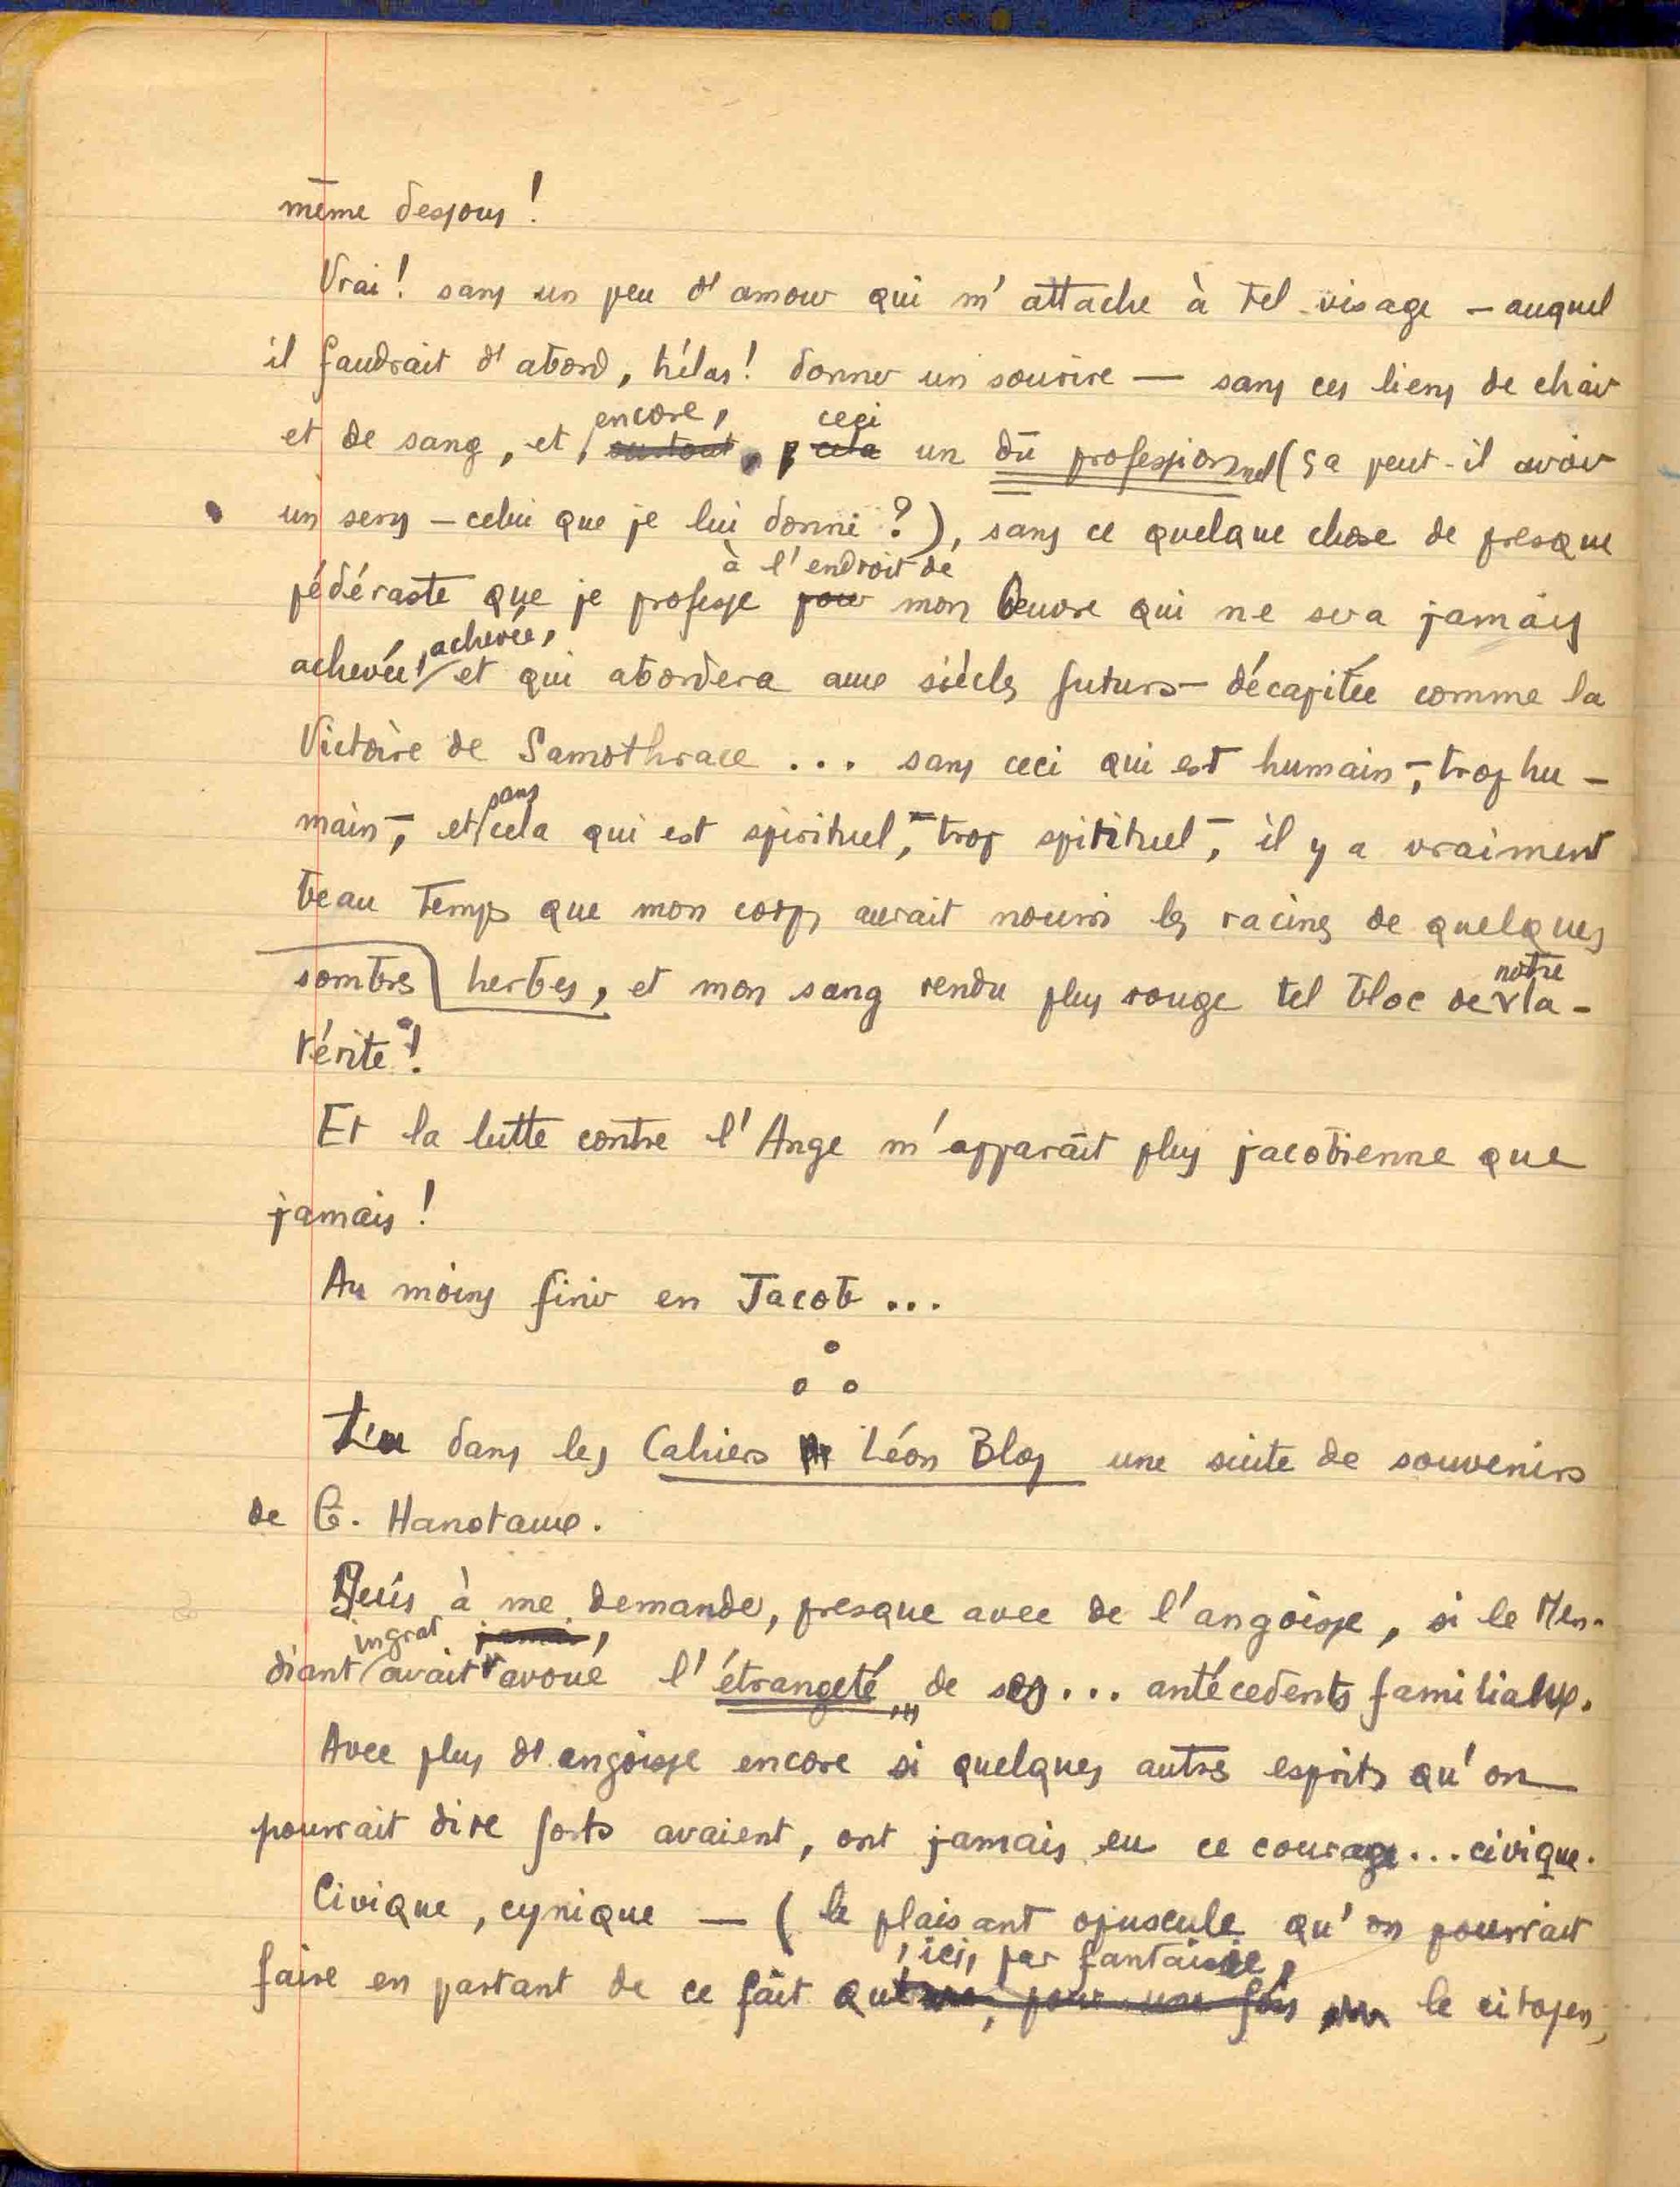 même dessous !
Vrai ! sans un peu d'amour qui m'attache à tel visage — auquel
il faudrait d'abord, hélas ! donner un sourire — sans ces liens de chair
encore, ceci
et de sang, et, surtout, cela un dû professionnel (ça peut-il avoir
un sens — celui que je lui donne ?), sans ce quelque chose de presque
à l'endroit de
pédéraste que je professe pour mon Œuvre qui ne sera jamais
, achevée,
achevée et qui abordera aux siècles futurs — décapitée comme la
Victoire de Samothrace ... sans ceci qui est humain —, trop hu-
sans
main —, et cela qui est spirituel, — trop spitituel —, il y a vraiment
beau temps que mon corps aurait nourri les racines de quelques
notre
sombres herbes, et mon sang rendu plus rouge tel bloc de la-
térite !
Et la lutte contre l'Ange m'apparaît plus jacobienne que
jamais !
Au moins finir en Jacob ...
Lu dans les Cahiers Léon Bloy une suite de souvenirs
de G. Hanotaux.
Suis à me demander, presque avec de l'angoisse, si le Men-
ingrat jamais,
diant avait avoué l'étrangeté de ses ... antécedents familiaux.
Avec plus d'angoisse encore si quelques autres esprits qu'on
pourrait dire forts avaient, ont jamais eu ce courage ... civique.
Civique, cynique — (le plaisant opuscule qu'on pourrait
, ici, par fantaisie,
faire en partant de ce fait que pour une fois le citoyen,